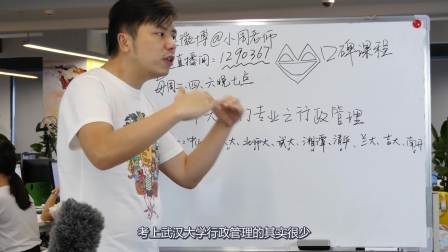 微博@小周老师
直播间：1290367
口碑课程
每周二、四、六晚七点
专业之行政管理
大、北师大、武大、湘潭、清华、兰大、吉大、南开
考上武汉大学行政管理的其实很少